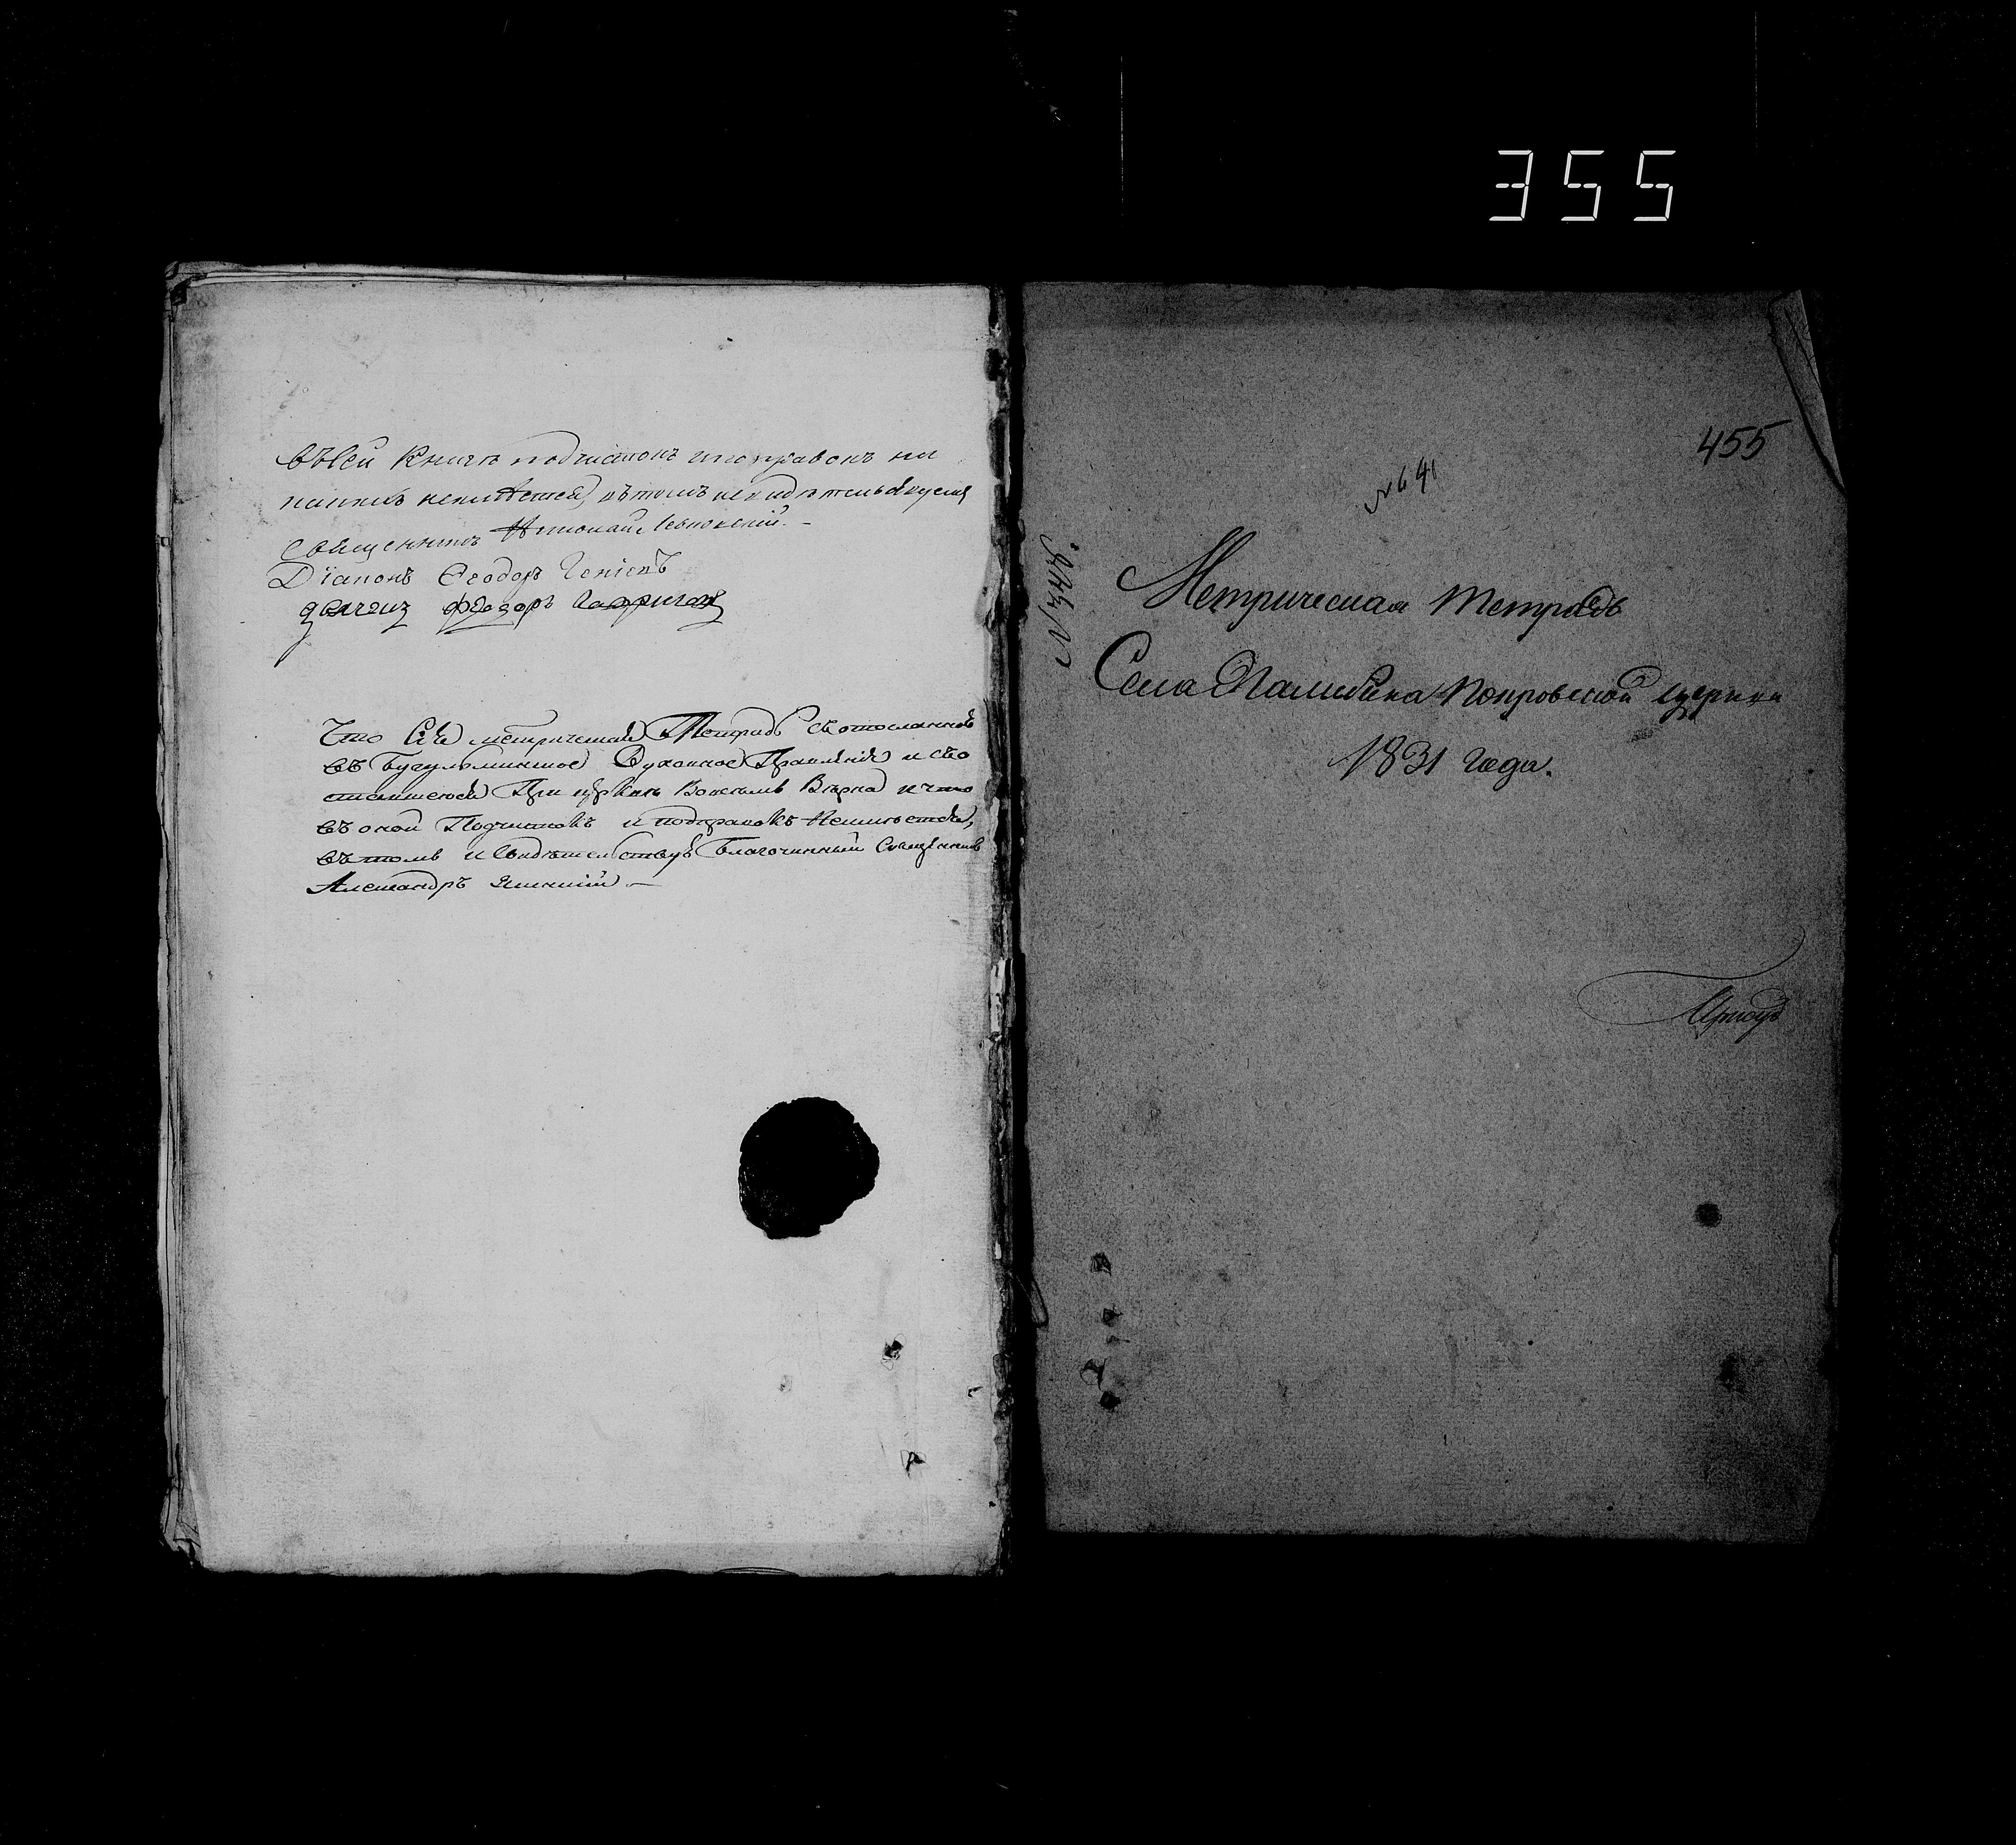 355
въ сей книгѣ подчистокъ и поправокъ ни
какихъ неимѣется, въ томъ и свидѣтельствуемъ
Священникъ Николай
Дїаконъ Ѳеодоръ
дьячекъ Ѳеодоръ
Что Сія метрическая Тетрадь съ отосланной
въ Бугульминское Духовное Правленіе и съ
оставшеюся При церькви Во всемъ Вѣрна и что
въ оной Подчистокъ и поправокъ Неимѣется,
въ томъ и Свидѣтельствуетъ Благочинный Священникъ
Александръ
455
№ 641
№ 348.
Метрическая тетрадь
Села Покровской церкви
1831 года.